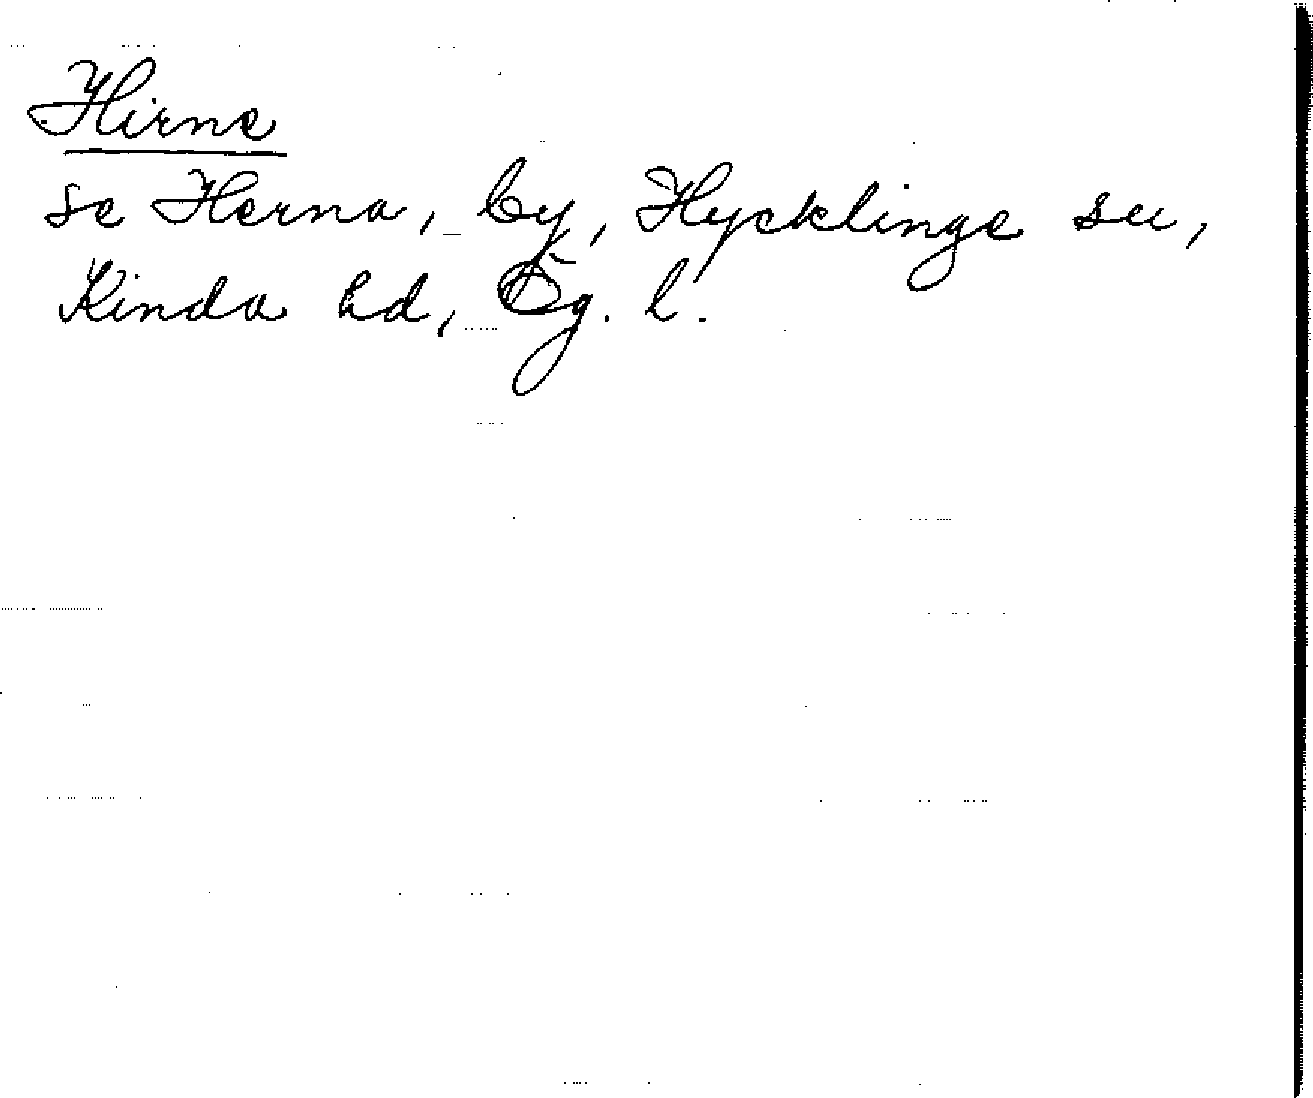 Hirne
se Herna, by, Hycklinge sn,
Kinda hd, Ög. l.